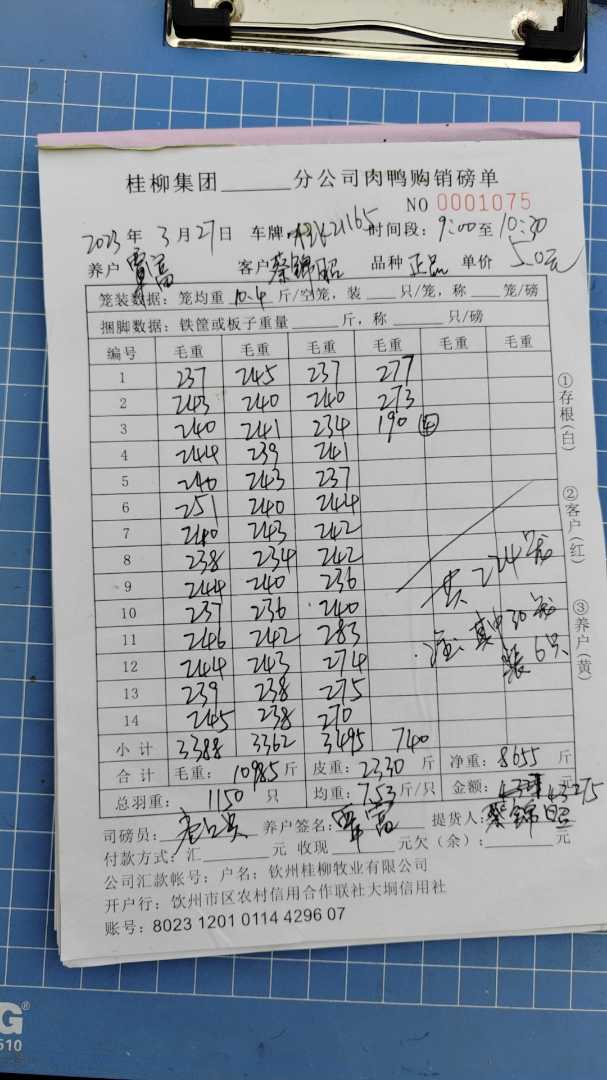 桂柳集团______分公司肉鸭购销磅单
NO 0001075
2023 年 3 月 27 日 车牌: 21165 时间段: 9:00 至 10:30
养户 覃富 客户 蔡锦昭 品种 正品 单价 5.0元
笼装数据: 笼均重 10.4 斤/空笼, 装 ___ 只/笼, 称 ___ 笼/磅
捆脚数据: 铁筐或板子重量 ______ 斤, 称 ______ 只/磅
编号 毛重 毛重 毛重 毛重 毛重 毛重
1 237 245 237 277
2 243 240 240 273
3 240 241 234 190 ④
4 244 239 241
5 240 243 237
6 251 240 244
7 240 243 242
8 238 234 242
9 244 240 236
10 237 236 240
11 246 242 283
12 244 243 274
13 239 238 275
14 245 238 270
共224笼
注: 其中30笼
装6只
小计 3388 3362 3495 740
合计 毛重: 10985 斤 皮重: 2330 斤 净重: 8655 斤
总羽重: 1150 只 均重: 7.53 斤/只 金额: 43275 元
司磅员: 养户签名: 覃富 提货人: 蔡锦昭
付款方式: 汇______元 收现______元欠(余): ______元
公司汇款帐号: 户名: 钦州桂柳牧业有限公司
开户行: 钦州市区农村信用合作联社大垌信用社
账号: 8023 1201 0114 4296 07
①存根(白)
②客户(红)
③养户(黄)
G®
510